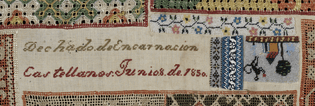 Dechado.de Encarnacion
Castellanos. Junio 8. de. 1850.